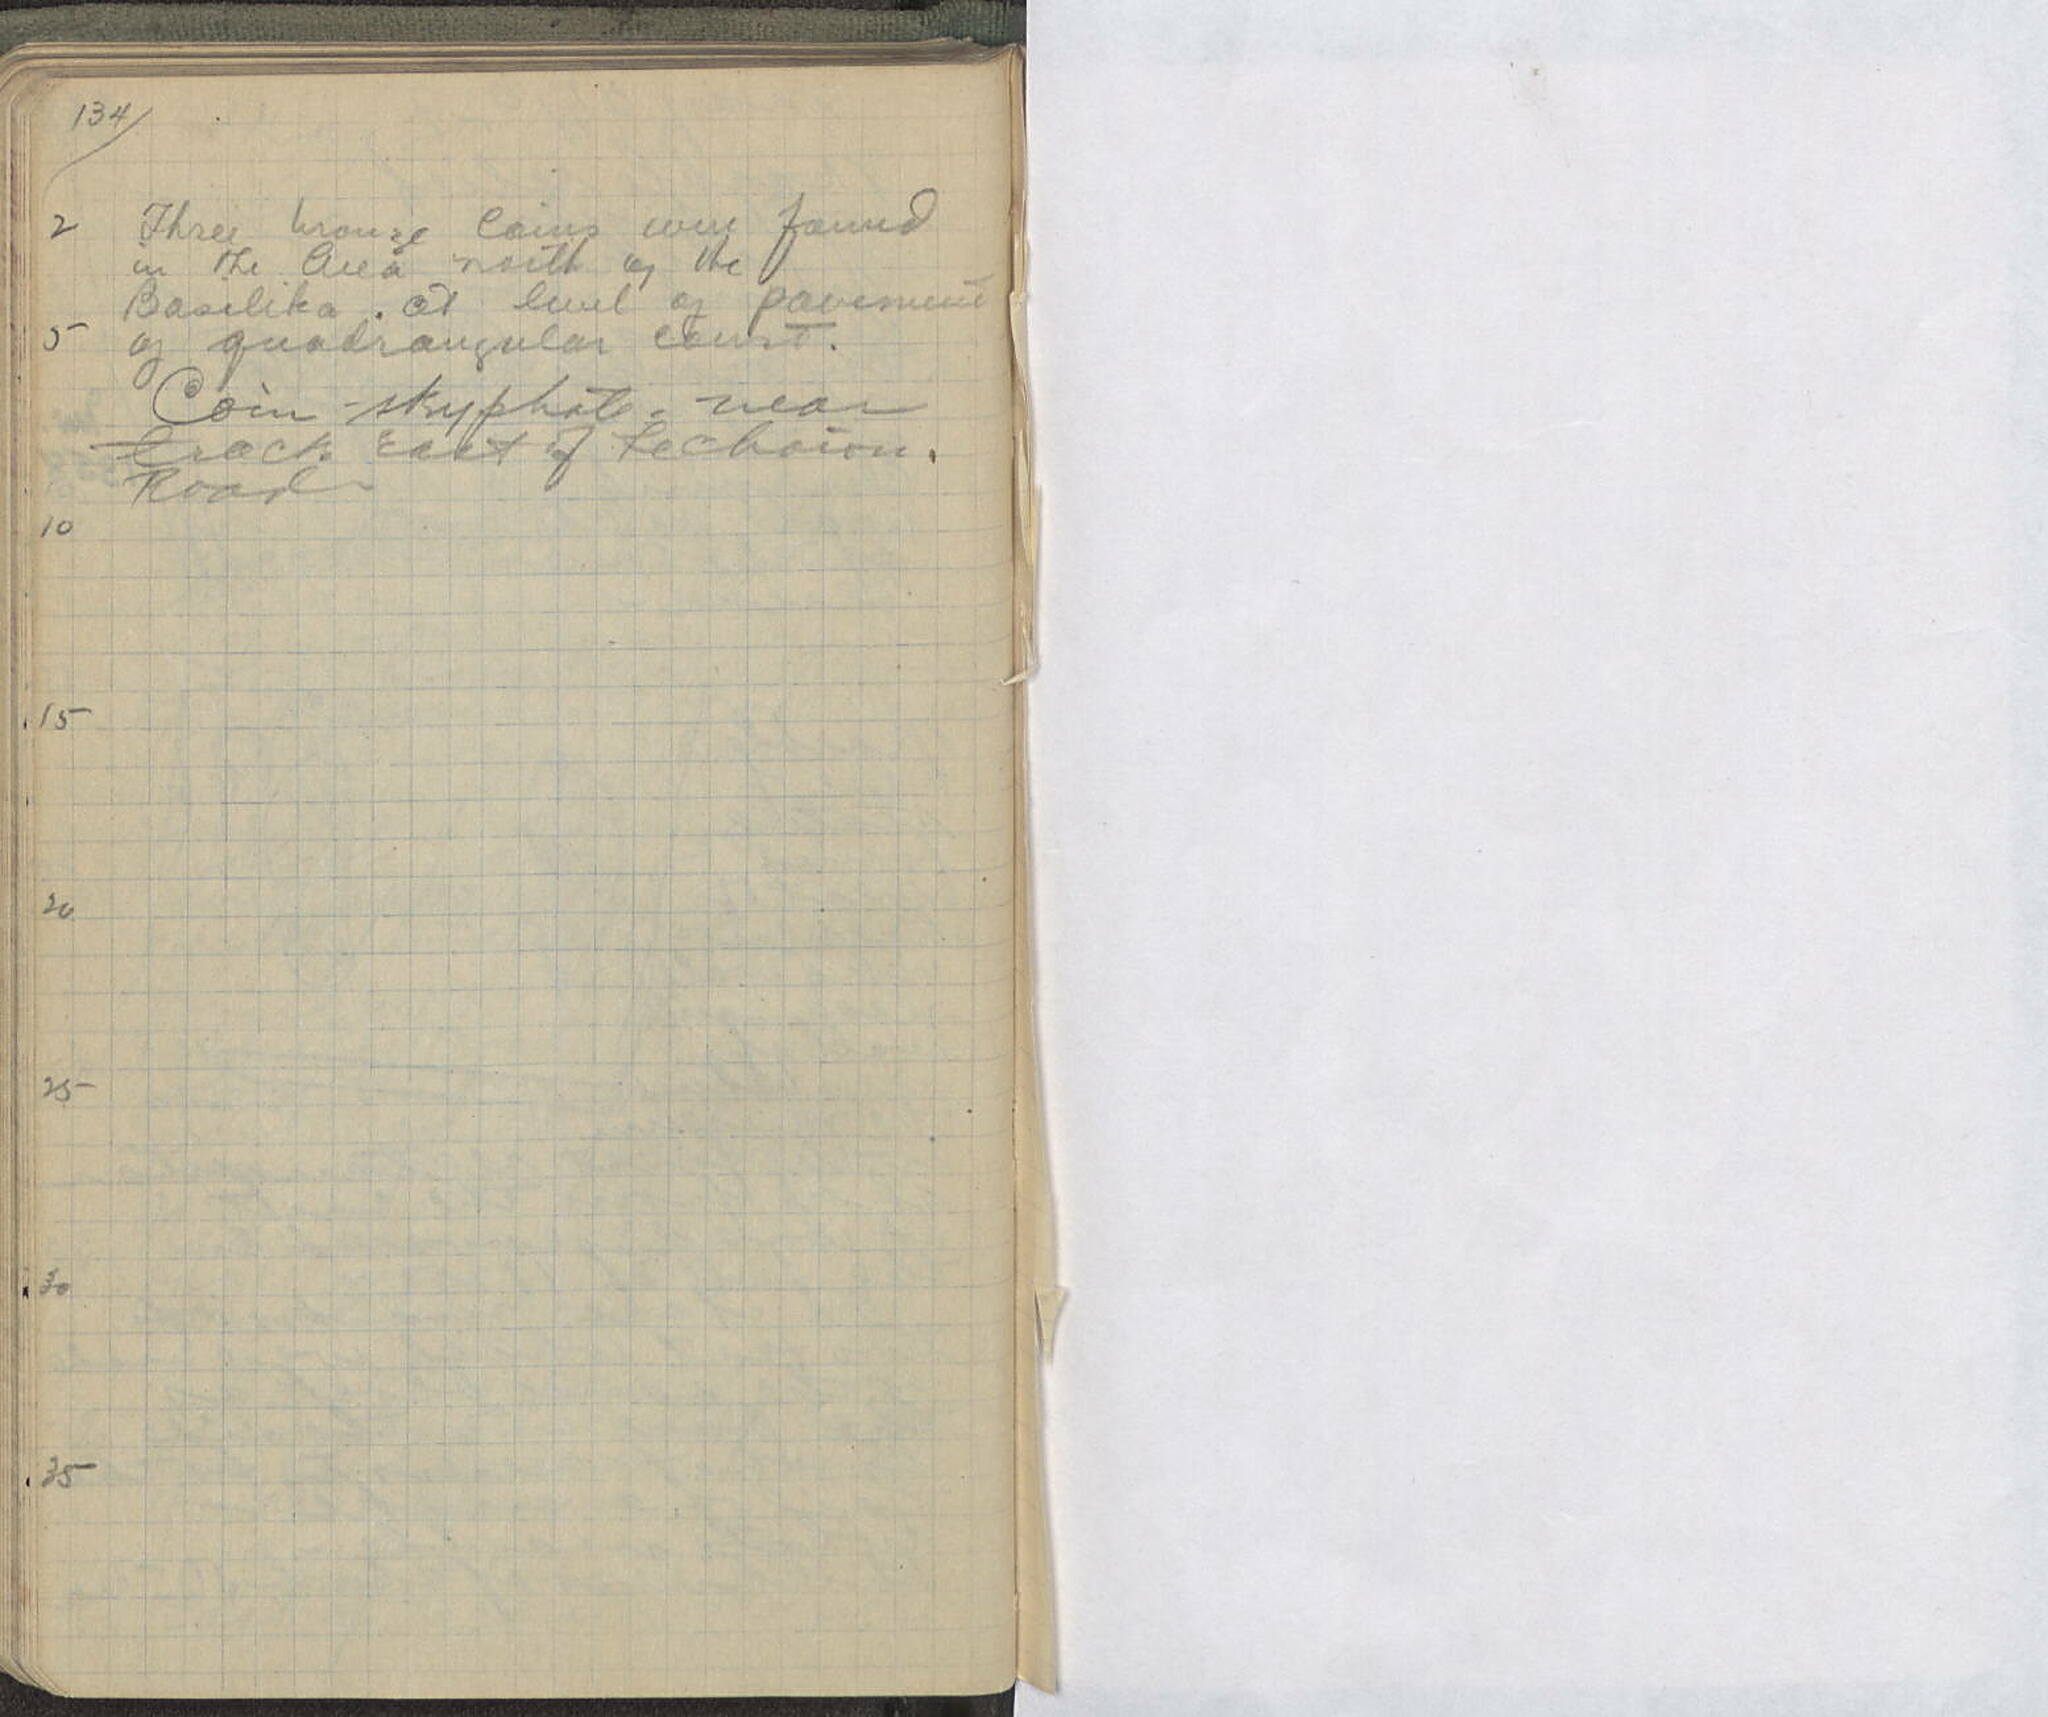 134
2 Three bronze coins were found
in the Area north of the
Basilika. at level of pavement
5 of quadrangular court.
Coin - skyphate. near
track East of Lechaion.
Road
10
15
20
25
30
35